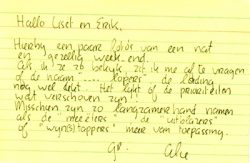 Hallo Liset en Erik,
Hierbij een paar foto's van een nat
en gezellig week-end.
Als ik ze zo bekijk, zit ik me af te vragen
of de naam "... toppers" de lading
nog wel dekt. Het lijkt of de prioriteiten
wat verschoven zijn.
Misschien zijn zo langzamerhand namen
als de "meeëters", de "uitblazers"
of "wijn(s)tappers" meer van toepassing.
Gr.